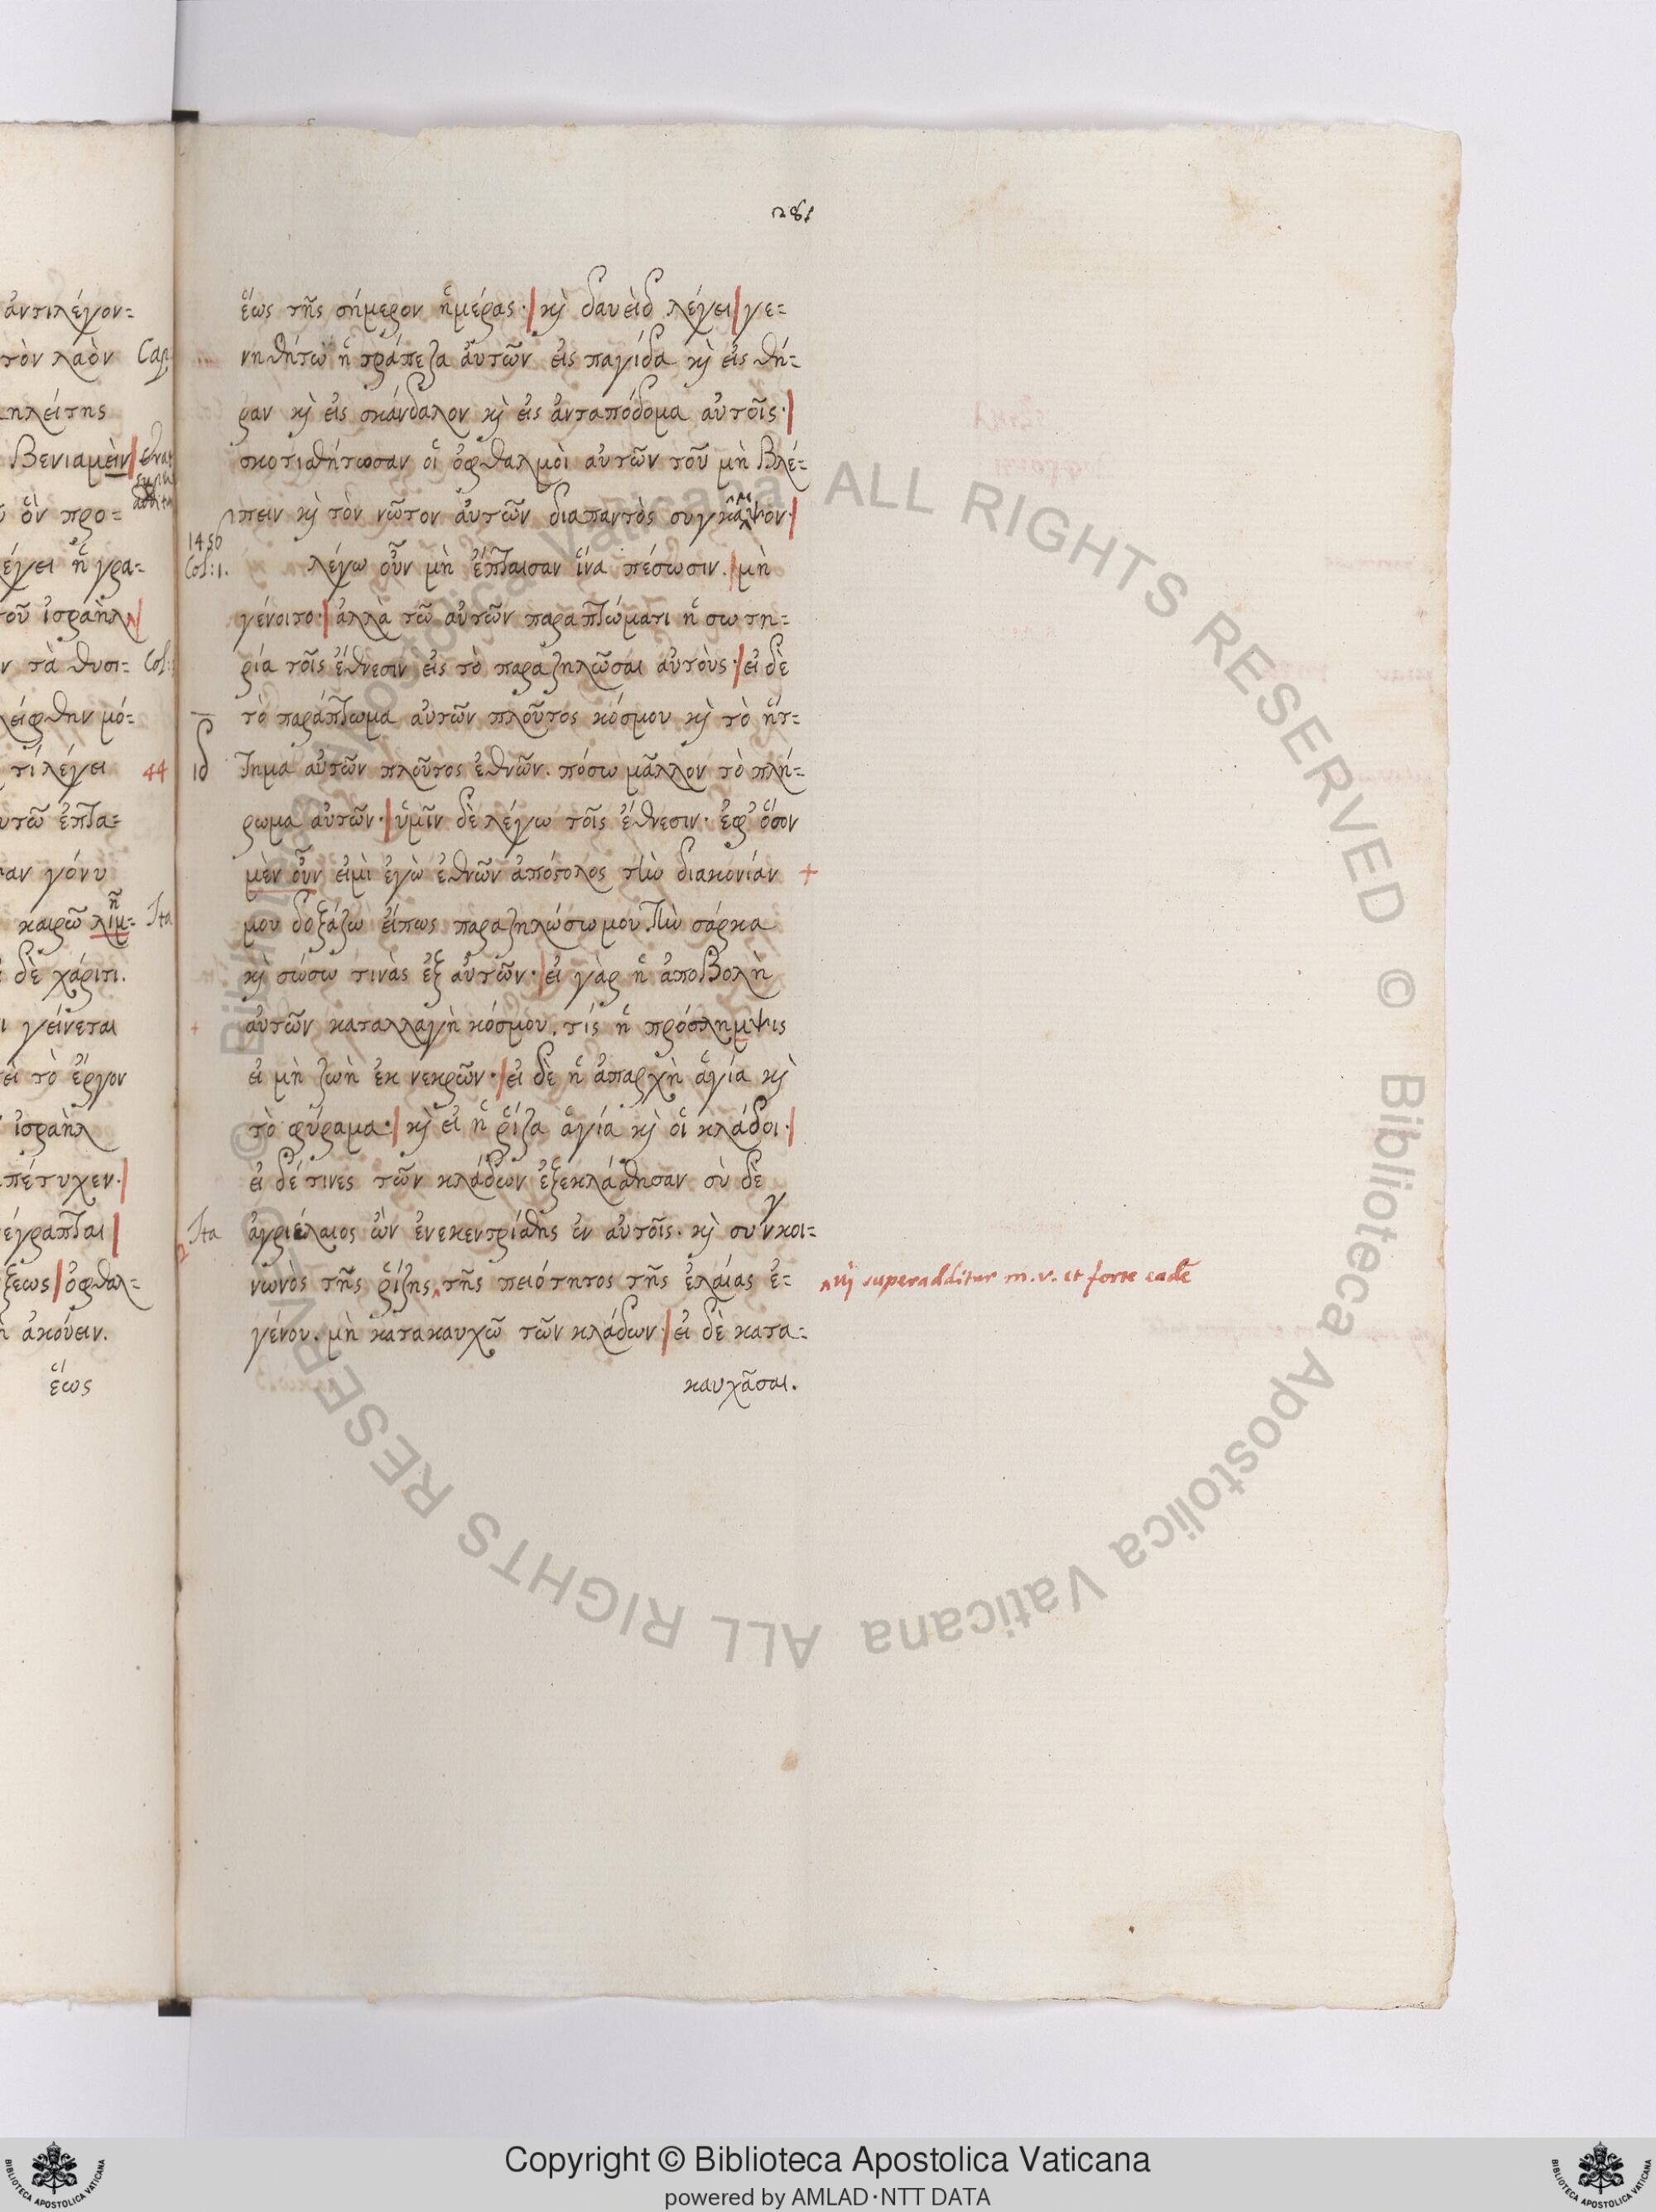 281
ἀντιλέγον=
τὸν λαὸν
ηλείτης
Βενιαμεὶν
ὃν προ=
λέγει ἡ γρα=
τοῦ ἰσραὴλ
τὰ θυσι= Col:
λείφθην μό=
τί λέγει 44
αὐτῶ ἑπτα=
γόνυ
καιρῶ λιμ= Ita
δὲ χάριτι.
γείνεται
τὸ ἔργον
ἰσραὴλ
πέτυχεν·
έγραπται
ξεως ὀφθαλ=
ἀκούειν.
ἕως
ἕως τῆς σήμερον ἡμέρας· κὶ δαυεὶδ λέγει γε=
νηθήτω ἡ τράπεζα αὐτῶν εἰς παγίδα κὶ εἰς θή=
ραν κὶ εἰς σκάνδαλον κὶ εἰς ἀνταπόδομα αὐτοῖς·
σκοτισθήτωσαν οἱ ὀφθαλμοὶ αὐτῶν τοῦ μὴ βλέ=
πειν κὶ τὸν νῶτον αὐτῶν διαπαντὸς συγκαμψον·
1456
Col: 1. λέγω οὖν μὴ ἔπταισαν ἵνα πέσωσιν. μὴ
γένοιτο· ἀλλὰ τῶ αὐτῶν παραπτώματι ἡ σωτη=
ρία τοῖς ἔθνεσιν εἰς τὸ παραζηλῶσαι αὐτοὺς· εἰ δὲ
τὸ παράπτωμα αὐτῶν πλοῦτος κόσμου κὶ τὸ ἥτ=
ιδ τημα αὐτῶν πλοῦτος ἐθνῶν. πόσω μᾶλλον τὸ πλή=
ρωμα αὐτῶν· ὑμῖν δὲ λέγω τοῖς ἔθνεσιν· ἐφ' ὅσον
μὲν οὖν εἰμὶ ἐγὼ ἐθνῶν ἀπόστολος τὴν διακονίαν +
μου δοξάζω εἴπως παραζηλώσω μου τὴν σάρκα
κὶ σώσω τινὰς ἐξ αὐτῶν· εἰ γὰρ ἡ ἀποβολὴ
+ αὐτῶν καταλλαγὴ κόσμου. τίς ἡ πρόσλημψις
εἰ μὴ ζωὴ ἐκ νεκρῶν· εἰ δὲ ἡ ἀπαρχὴ ἁγία κὶ
τὸ φύραμα· κὶ εἰ ἡ ῥίζα ἁγία κὶ οἱ κλάδοι·
εἰ δέ τινες τῶν κλάδων ἐξεκλάσθησαν σὺ δὲ
Ita ἀγριέλαιος ὢν ἐνεκεντρίσθης ἐν αὐτοῖς. κὶ συνκοι=
νωνὸς τῆς ῥίζης ‸ τῆς πειότητος τῆς ἐλαίας ἐ= ‸ κὶ superadditur m. v. et forte eadẽ
γένου. μὴ κατακαυχῶ τῶν κλάδων· εἰ δὲ κατα=
καυχᾶσαι.
© Biblioteca Apostolica Vaticana ALL RIGHTS RESERVED © Biblioteca Apostolica Vaticana ALL RIGHTS RESERVED
Copyright © Biblioteca Apostolica Vaticana
powered by AMLAD·NTT DATA
BIBLIOTECA APOSTOLICA VATICANA
BIBLIOTECA APOSTOLICA VATICANA